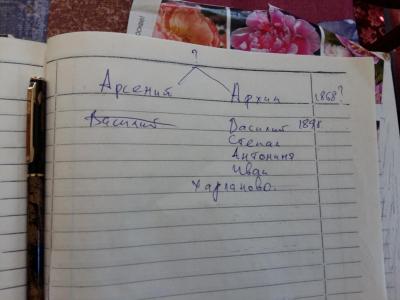 ?
Арсений Архип 1868?
Василий Василий 1898
Степан
Антонина
Иван
Харланово.